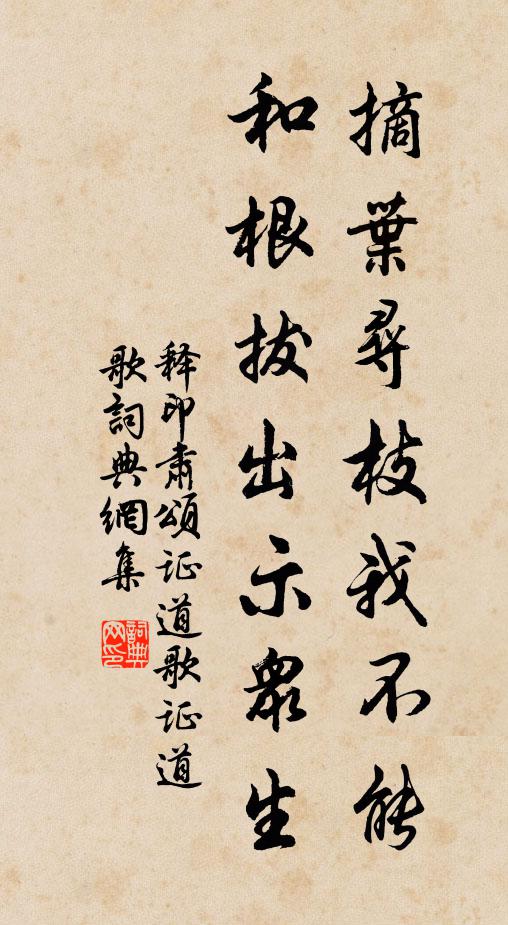 摘葉尋枝我不能
和根拔出示眾生
释印肃頌证道歌证道
歌詞典網集
詞典
网印